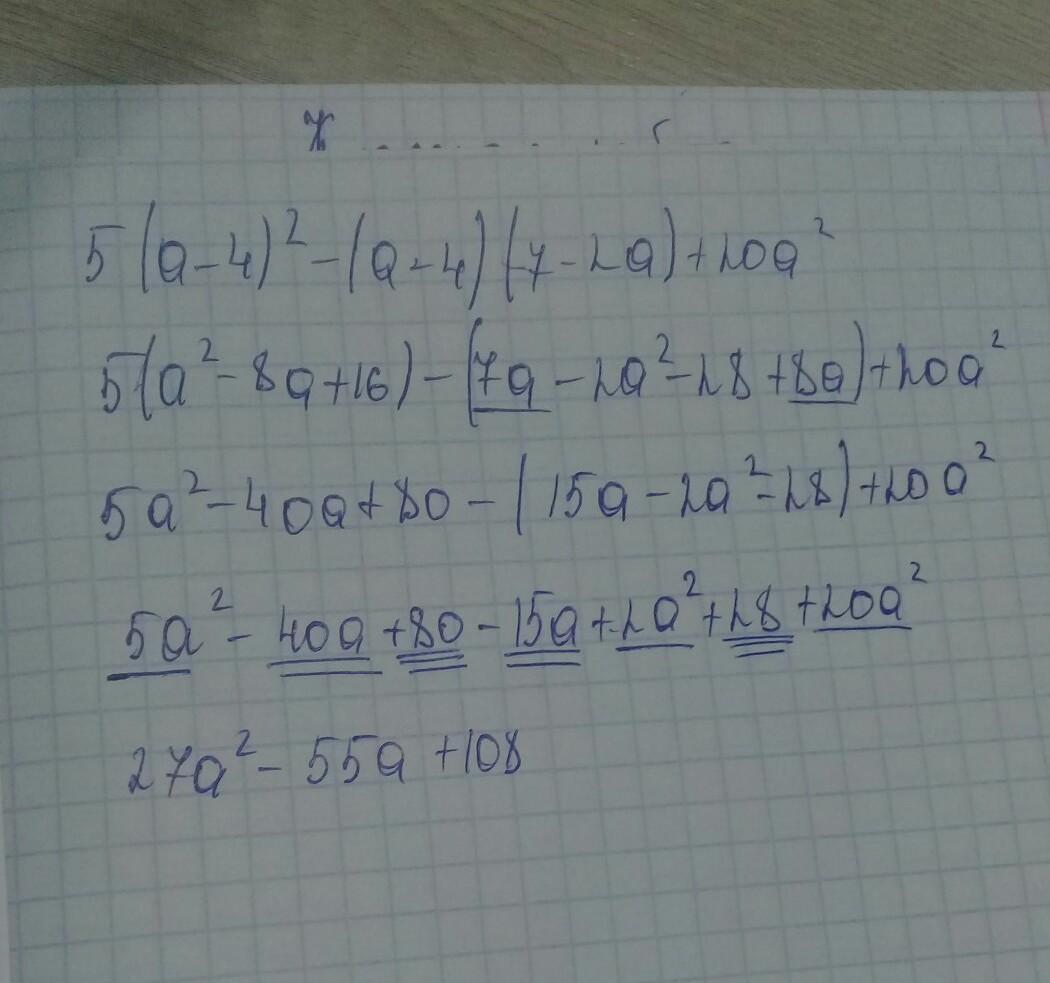 5(a-4)²-(a-4)(7-2a)+20a²
5(a²-8a+16)-(7a-2a²-28+8a)+20a²
5a²-40a+80-(15a-2a²-28)+20a²
5a²-40a+80-15a+2a²+28+20a²
27a²-55a+108